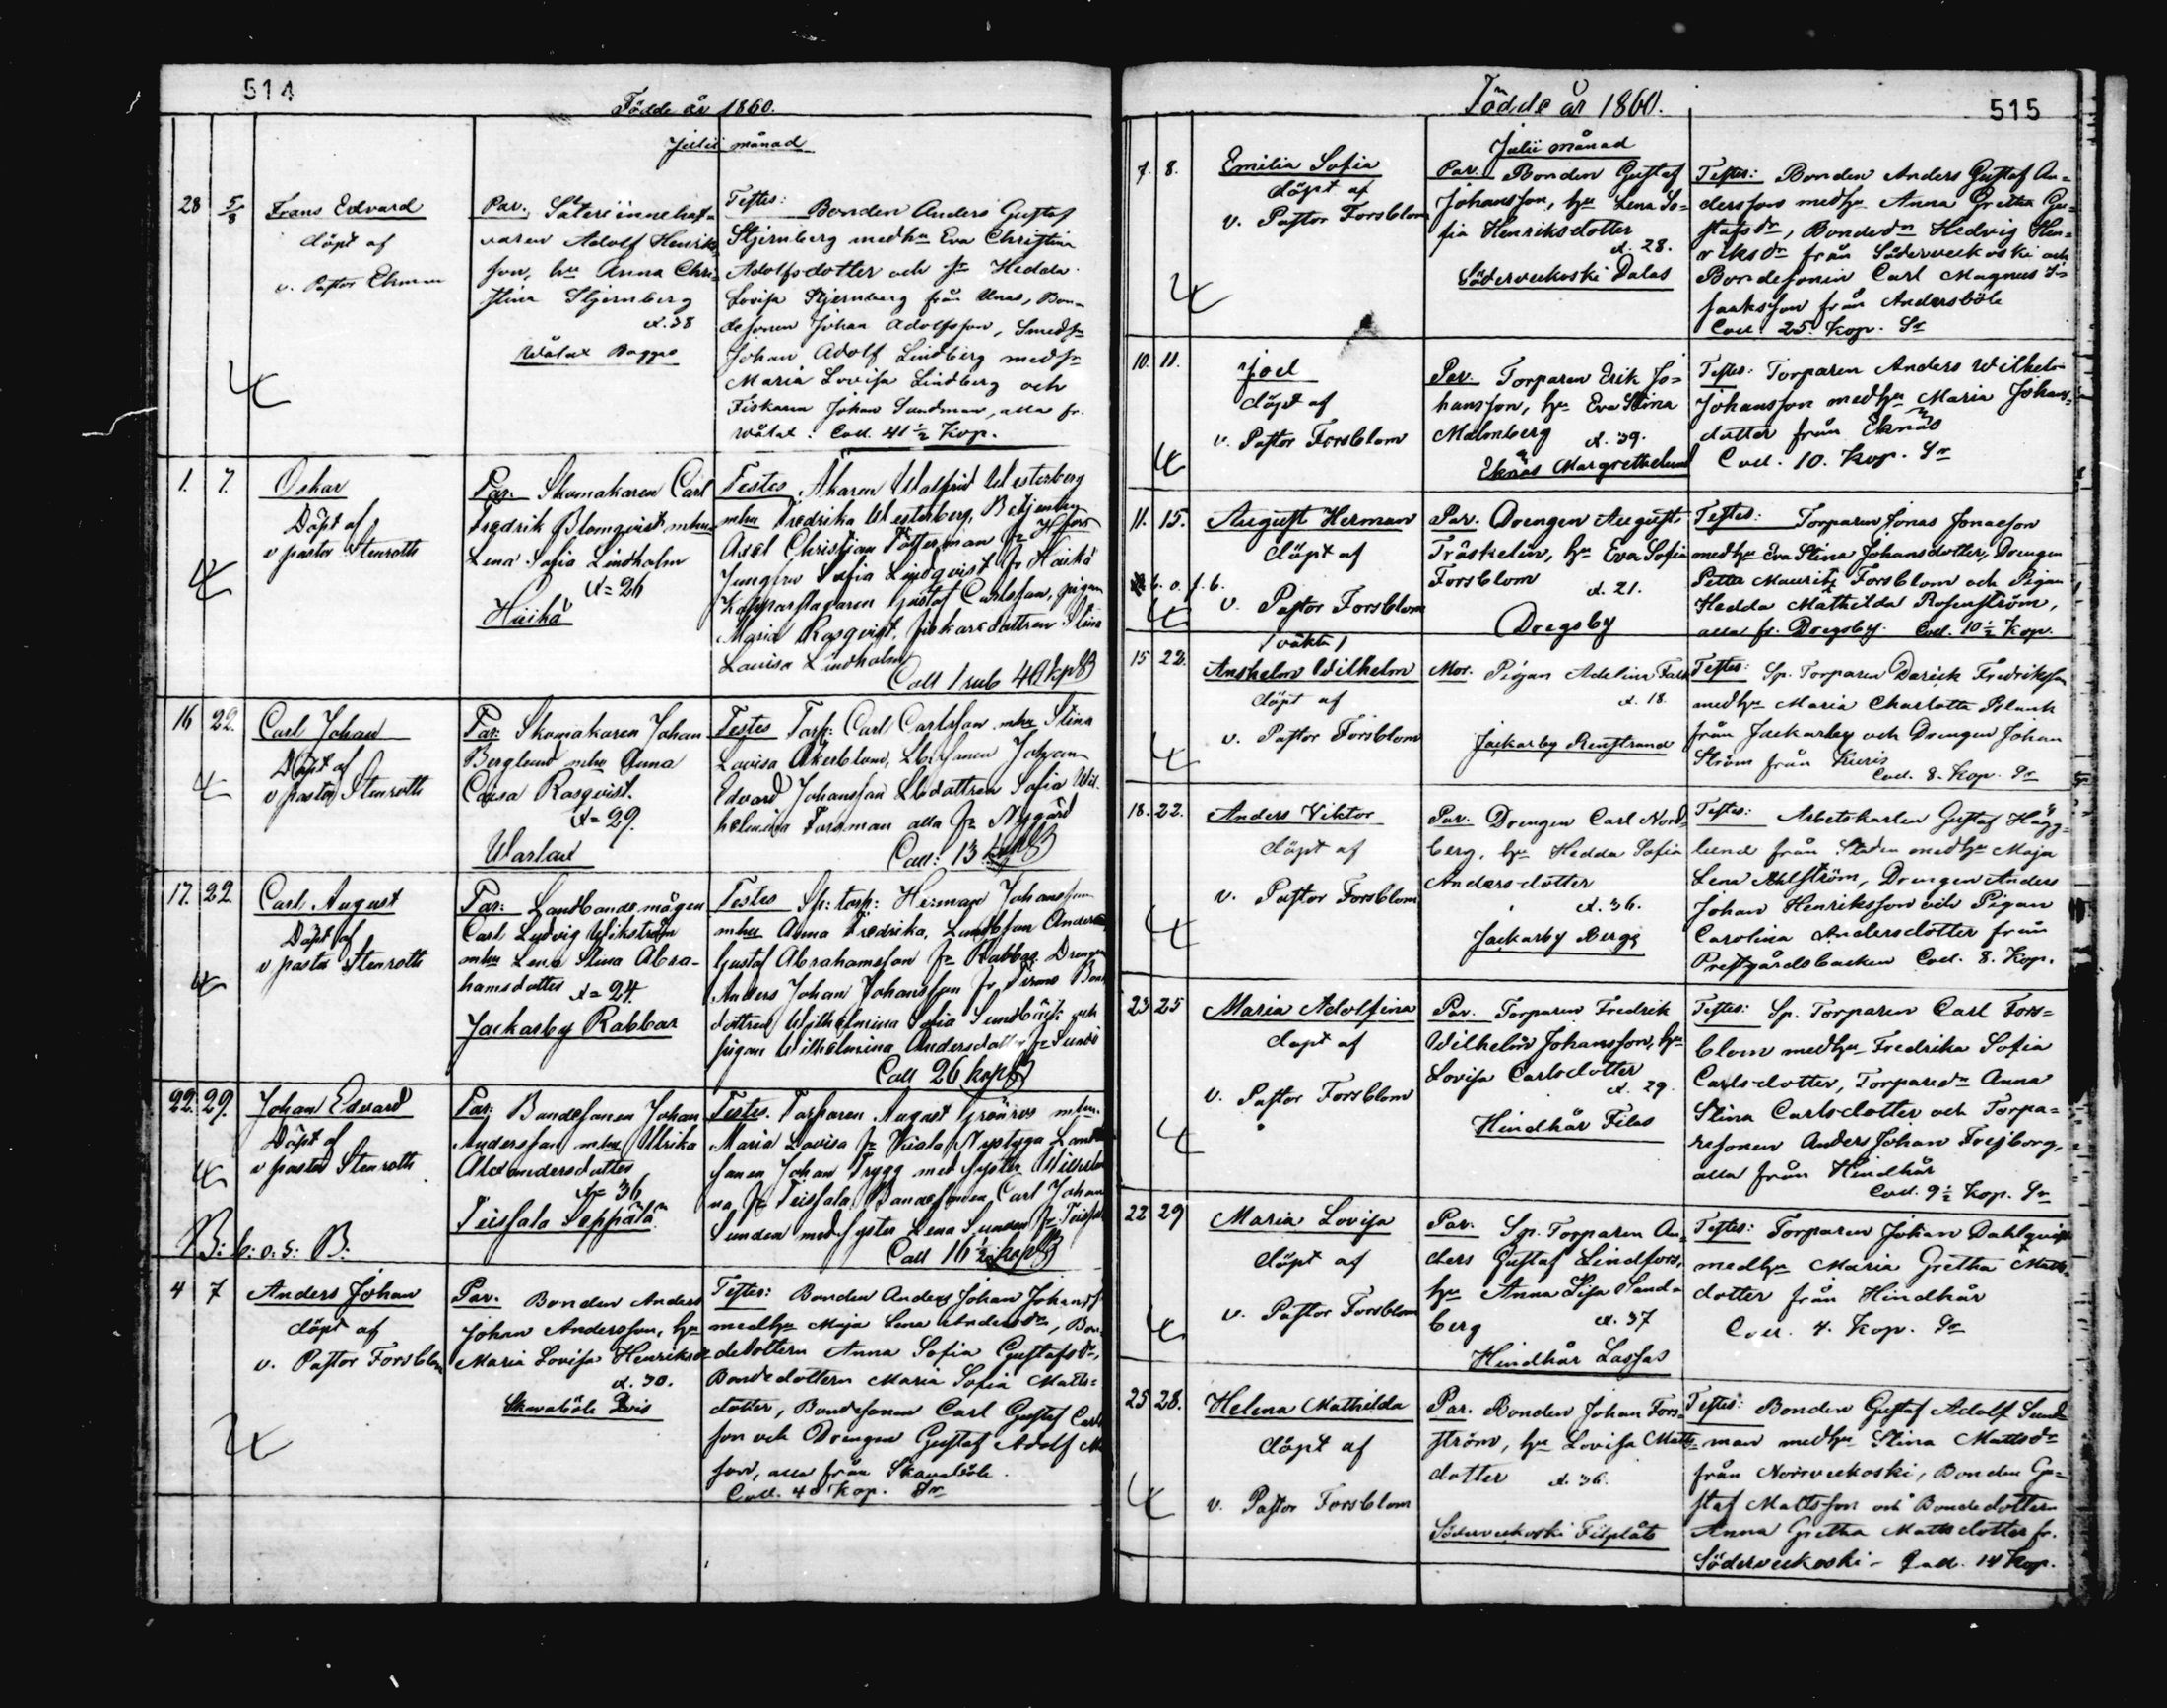 514
Födde år 1860.
Julii månad
28 5/8 Frans Edvard
döpt af
v. Pastor Ekman
Par. Säteriinnehaf-
varen Adolf Henriks
son, hu Anna Chri-
stina Stjernberg
æt. 38
Wålax Bagges
Testes: Bonden Anders Gustaf
Stjernberg med hu Eva Christina
Adolfsdotter och Jr Hedda
Lovisa Stjernberg från Unas, Bon-
desonen Johan Adolfsson, Smeds
Johan Adolf Lindberg med
Maria Lovisa Lindberg och
Fiskaren Johan Sundman, alla fr.
Wålax: Coll. 41 1/2 Kop.
1. 7. Oskar
Döpt af
v pastor Stenroth
Par. Skomakaren Carl
Fredrik Blomqvist mhu
Lena Sofia Lindholm
æt= 26
Haikå
Testes Åkaren Walfrid Westerberg
mhu Fredrika Westerberg, Betjenten
Axel Christjan fr Hfors
Jungfrun Sofia Lindqvist fr Haikå
Kopparslagaren Gustaf Carlsson, pigan
Maria Rosqvist, fiskaredottren Stina
Lovisa Lindholm
Coll 1 rub 40 kp
16 22. Carl Johan
Döpt af
v pastor Stenroth
Par: Skomakaren Johan
Berglund mhu Anna
Caisa Rosqvist.
æt= 29.
Warlax
Testes Torp: Carl Carlsson mhu Stina
Lovisa Åkerblom, Lb.sonen Johan
Edvard Johansson Lbdottren Sofia Wil-
helmina Forsman alla fr Nygård
Coll: 13 kop
17. 22. Carl August
Döpt af
v pastor Stenroth
Par: Landbonde mågen
Carl Ludvig Wikström
mhu Lena Stina Abra-
hamsdotter æt= 24.
Jackarby Rabbas
Testes Sp: torp: Herman Johansson
mhu Anna Fredrika, Landbson Anders
Gustaf Abrahamsson fr Rabbas Drengen
Anders Johan Johansson fr
dottren Wilhelmina Sofia Sundbäck och
pigan Wilhelmina Andersdotter fr
Coll 26 kop
22. 29. Johan Edvard
Döpt af
v pastor Stenroth
Par: Bondesonen Johan
Andersson mhu Ulrika
Alexandersdotter
æt= 36
Teissala Seppälä
Testes. Torparen August Grönroos mhu
Maria Lovisa fr Wiala Nystyga
sonen Johan Trygg med syster
na fr Teissala, Bondesonen, Carl Johan
Sunden med syster Lena Sunden fr
Coll 16 1/2 kop
B: b: o: s: B:
4 7 Anders Johan
döpt af
v. Pastor Forsblom
Par. Bonden Anders
Johan Andersson, hu
Maria Lovisa Henriksd
æt. 30.
Skavaböle
Testes: Bonden Anders Johan Johans
med hu Maja Lena Andersdr, Bon-
dedottern Anna Sofia Gustafsdr,
Bondedottern Maria Sofia Matts-
dotter, Bondesonen Carl Gustaf Carls
son och Drengen Gustaf Adolf
son, alla från Skavaböle.
Coll. 40 Kop. Sr
Födde år 1860.
515
Julii månad
7. 8. Emilia Sofia
döpt af
v. Pastor Forsblom
Par. Bonden Gustaf
Johansson, hu Lena So-
fia Henriksdotter
æt. 28.
Söderveckoski Dalas
Testes: Bonden Anders Gustaf An-
dersson med hu Anna Gretha Gu-
stafsdr, Bondedn Hedvig Hen-
riksdr från Söderveckoski och
Bondesonen Carl Magnus I-
saksson från Andersböle
Coll. 25. Kop. Sr
10. 11. Joel
döpt af
v. Pastor Forsblom
Par. Torparen Erik Jo-
hansson, hu Eva Stina
Malmberg æt. 39.
Eknäs Margrethelund
Testes: Torparen Anders Wilhelm
Johansson med hu Maria Johans-
dotter från Eknäs
Coll. 10. Kop. Sr
11. 15. August Herman
döpt af
v. Pastor Forsblom
b. o. s. b.
Par. Drengen August
Träskelin, hu Eva Sofia
Forsblom
æt. 21.
Drägsby
Testes: Torparen Jonas Jonasson
med hu Eva Stina Johansdotter, Drengen
Petter Mauritz Forsblom och Pigan
Hedda Mathilda Rosenström,
alla fr. Drägsby. Coll. 10 1/2 Kop.
/oäkta/
15 22. Anshelm Wilhelm
döpt af
v. Pastor Forsblom
Mor. Pigan Adelina
æt. 18.
Jackarby Renstrand
Testes: Sp. Torparen Darick Fredriksson
med hu Maria Charlotta Blank
från Jackarby och Drengen Johan
Ström från Kuris
Coll. 8. Kop. Sr
18. 22. Anders Viktor
döpt af
v. Pastor Forsblom
Par. Drengen Carl Nord-
berg, hu Hedda Sofia
Andersdotter
æt. 36.
Jackarby Bergs
Testes: Arbetskarlen Gustaf Hägg-
lund från Staden med hu Maja
Lena Ahlström, Drengen Anders
Johan Henriksson och Pigan
Carolina Andersdotter från
Prestgårdsbacken Coll. 8. Kop.
23 25 Maria Adolfina
döpt af
v. Pastor Forsblom
Par. Torparen Fredrik
Wilhelm Johansson, hu
Lovisa Carlsdotter
æt. 29.
Hindhår Filas
Testes: Sp. Torparen Carl Fors-
blom med hu Fredrika Sofia
Carlsdotter, Torparedn Anna
Stina Carlsdotter och Torpa-
resonen Anders Johan Frejborg,
alla från Hindhår
Coll. 9 1/2 Kop. Sr
22 29 Maria Lovisa
döpt af
v. Pastor Forsblom
Par. Sp. Torparen An-
ders Gustaf Lindfors,
hu Anna Lisa Sand-
berg æt. 37
Hindhår Lassas
Testes: Torparen Johan Dahlqvist
med hu Maria Gretha Matts-
dotter från Hindhår
Coll. 4. Kop. Sr
25 28. Helena Mathilda
döpt af
v. Pastor Forsblom
Par. Bonden Johan Fors-
ström, hu Lovisa Matts-
dotter æt. 36.
Söderveckoski Filpåls
Testes: Bonden Gustaf Adolf Sund
man med hu Stina Mattsdr
från Norrveckoski, Bonden Gu-
staf Mattsson och Bondedottern
Anna Gretha Mattsdotter fr.
Söderveckoski - Coll. 14 Kop.